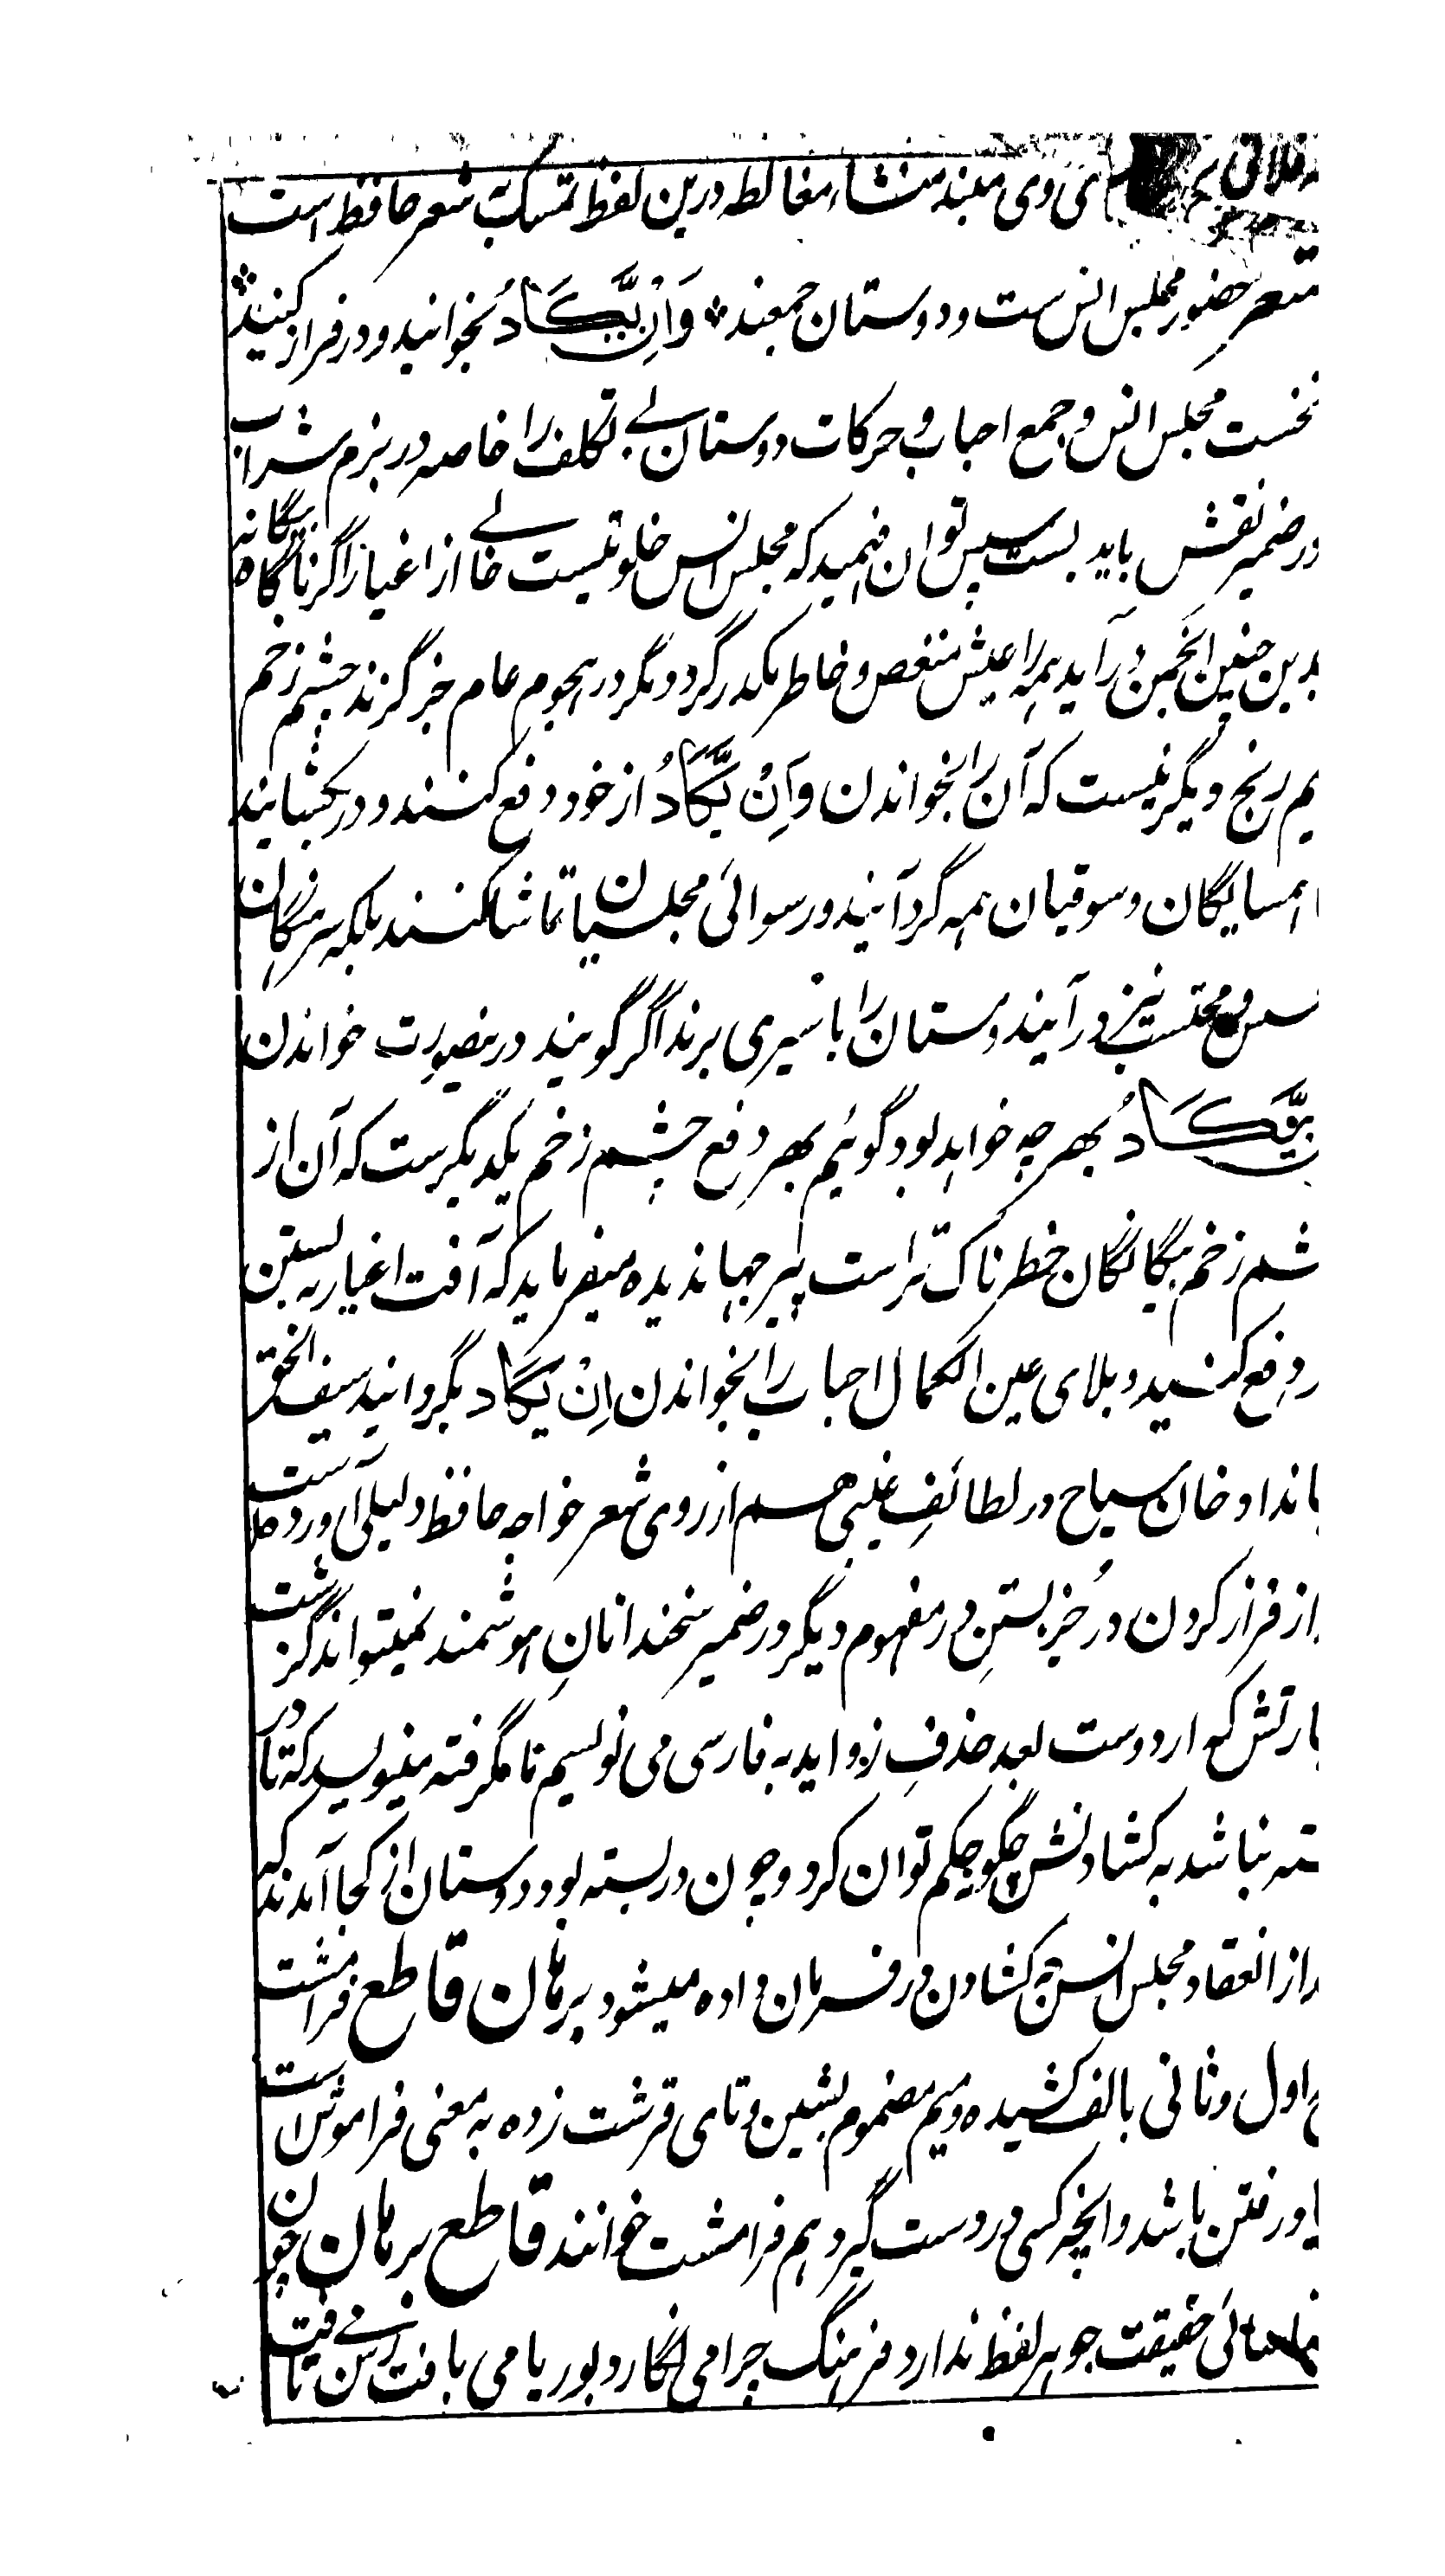 ی وی مبند منشاء مغالطه درین لفظ تمسک به شعر حافظ است
شعر حضور مجلس انس ست و دوستان جمعند * وَاِن یَّکَادُ بخوانید و در فراز کنید *
نخست مجلس انس و جمع احباب و حرکات دوستان بے تکلف را خاصه در بزم شراب
در ضمیر نقش باید بست سپس توان فهمید که مجلس انس خلوتیست خالے از اغیار اگر ناگاه بیگانه
بدین چنین انجمن در آید همه را عیش منغص و خاطر مکدر گردد مگر در هجوم عام جز گزند چشم زخم
بیم رنج دیگر نیست که آن را بخواندن وَاِنْ یَّکَادُ از خود دفع کنند و در بکشایند
همسایگان و سوقیان همه گرد آیند و رسوائی مجلسیان تماشا کنند بلکه سرهنگان
عسس و محتسب نیز در آیند و مستان را باسیری برند اگر گویند درینصورت خواندن
اِن یَّکَادُ بهر چه خواهد بود گوئیم بهر دفع چشم زخم یکدیگرست که آن از
چشم زخم بیگانگان خطرناک تر است پیر جهاندیده میفرماید که آفت اغیار به بستن
در دفع کنید و بلای عین الکمال احباب را بخواندن اِنْ یَکَاد بگردانید سیف الحق
میانداد خان سیاح در لطائفِ غیبی هم از روی شعر خواجه حافظ دلیلی آورده است
از فراز کردن در جز بستنِ در مفهوم دیگر در ضمیر سخندانانِ هوشمند نمیتواند گذشت
عبارتش که اردوست بعد حذفِ زواید به فارسی می نویسم نامگرفته مینویسد که تا در
بسته نباشد به کشادنش چگونه حکم توان کرد و چون در بسته بود دوستان از کجا آمدند که
بعد از انعقاد مجلس انس چه کشادن در فرمان داده میشود برهان قاطع فرامشت
اول و ثانی بالف کشیده و میم مضموم بشین و تای قرشت زده به معنی فراموش است
یاد رفتن باشد و آنچه کسی در دست گیرد هم فرامشت خوانند قاطع برهان چون
شناسائی حقیقت جوهر لفظ ندارد فرهنگ چرا می نگارد بوریا می بافت رسن می تافت تا